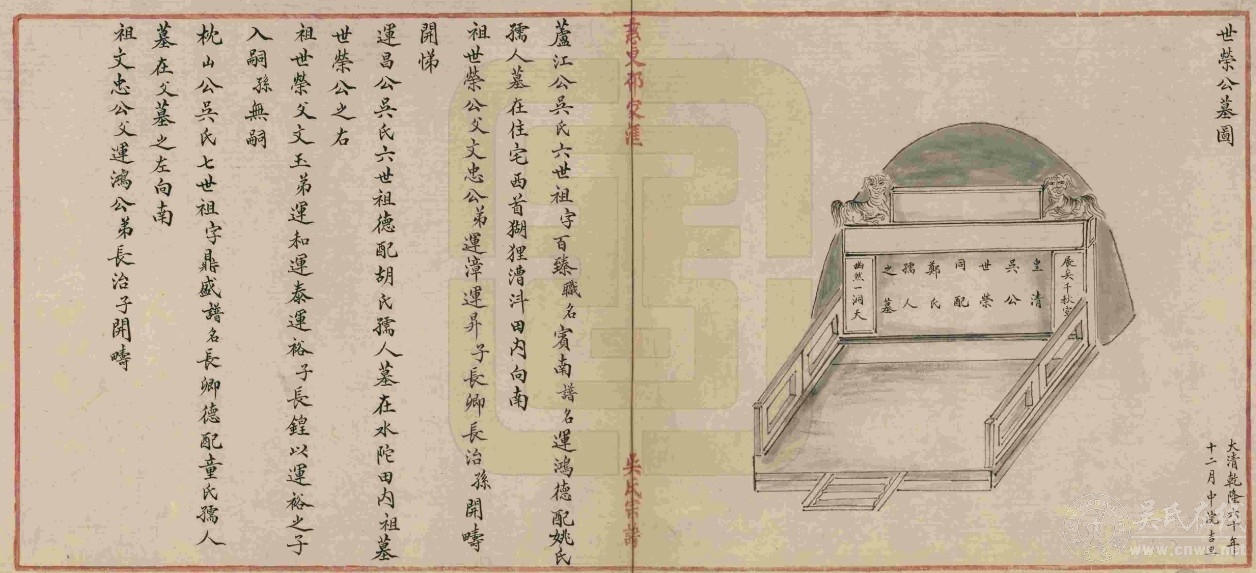 世榮公墓圖
矣千秋
皇清
吳公
世榮
同配
鄭氏
孺人
之墓
幽然一洞天
大清乾隆六十年
十二月中浣吉旦
慈東邵家滙
吳氏宗譜
蘆江公吳氏六世祖字百臻職名賓南譜名運鴻德配姚氏
孺人墓在住宅西首猢狸漕浒田内向南
祖世榮公父文忠公弟運漳運昇子長卿長治孫開疇
開悌
運昌公吳氏六世祖德配胡氏孺人墓在水陀田内祖墓
世榮公之右
祖世榮父文玉弟運和運泰運裕子長鍠以運裕之子
入嗣孫無嗣
枕山公吳氏七世祖字鼎盛譜名長卿德配童氏孺人
墓在父墓之左向南
祖文忠公父運鴻公弟長治子開疇
吴氏在线